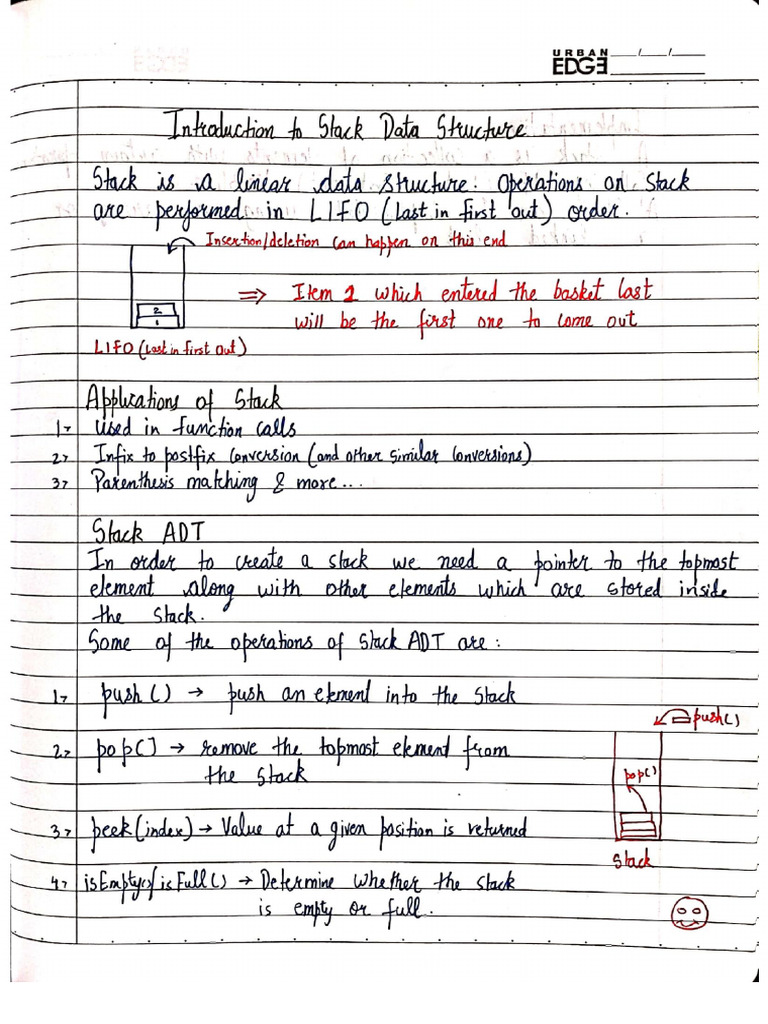 URBAN
EDGE
Introduction to Stack Data Structure
Stack is a linear data structure. Operations on Stack
are performed in LIFO (last in first out) order.
Insertion/deletion can happen on this end
2
1
⇒ Item 2 which entered the basket last
will be the first one to come out
LIFO (Last in first out)
Applications of Stack
1→ Used in function calls
2→ Infix to postfix conversion (and other similar conversions)
3→ Parenthesis matching & more...
Stack ADT
In order to create a stack we need a pointer to the topmost
element along with other elements which are stored inside
the stack.
Some of the operations of Stack ADT are:
1→ push() → push an element into the Stack
push()
2→ pop() → remove the topmost element from
the Stack
pop()
3→ peek(index) → Value at a given position is returned
Stack
4→ isEmpty()/isFull() → Determine whether the stack
is empty or full.